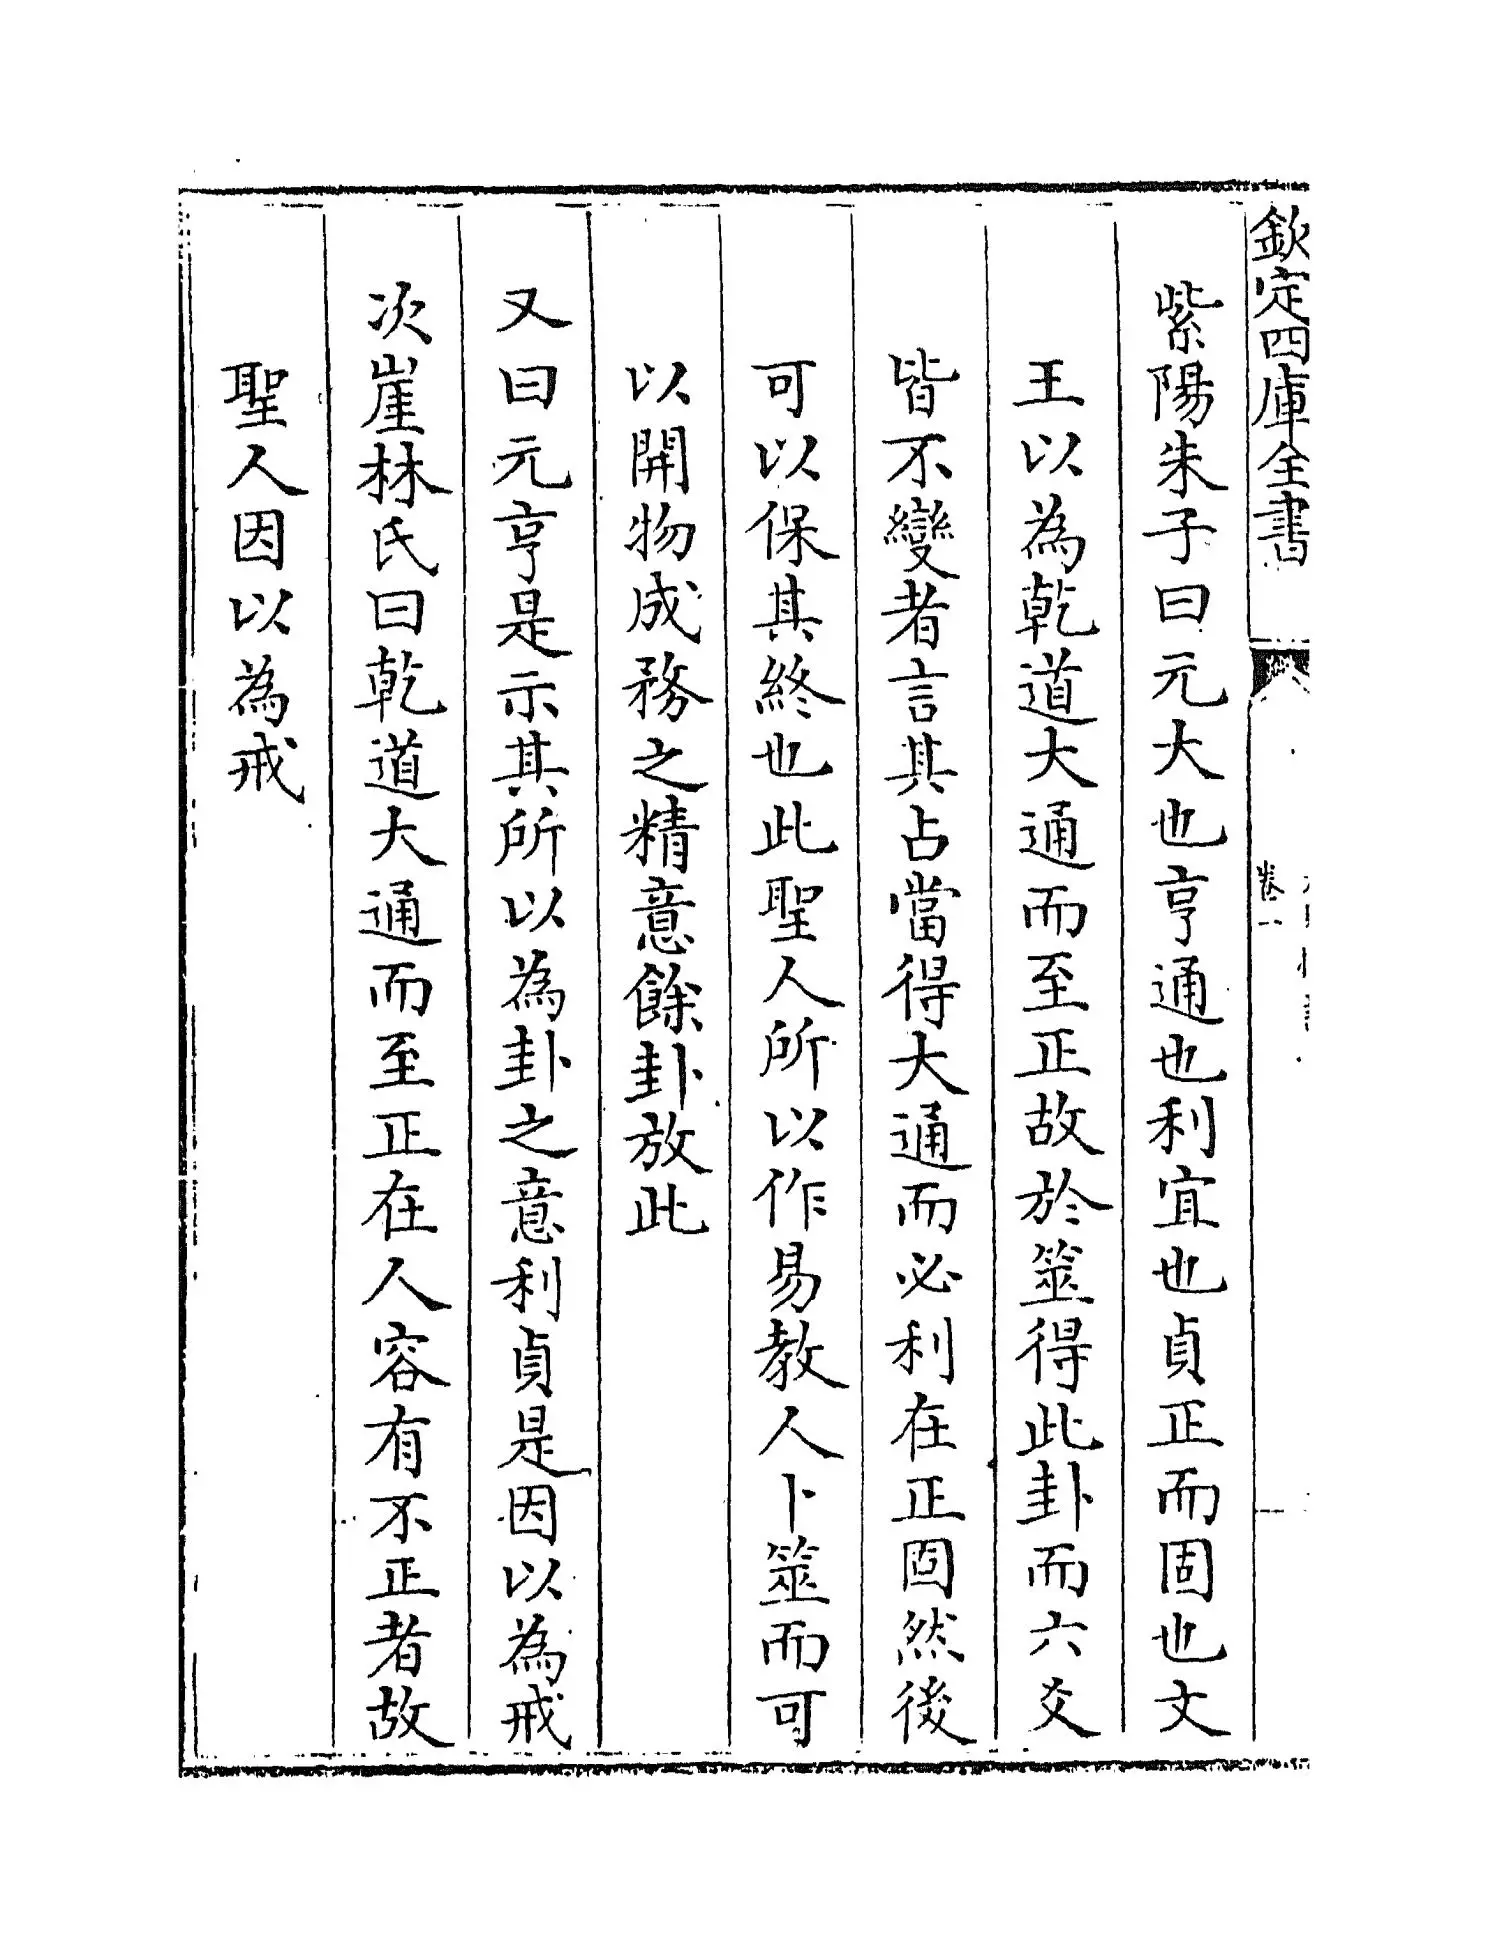 欽定四庫全書
卷一
紫陽朱子曰元大也亨通也利宜也貞正而固也文
王以為乾道大通而至正故於筮得此卦而六爻
皆不變者言其占當得大通而必利在正固然後
可以保其終也此聖人所以作易教人卜筮而可
以開物成務之精意餘卦放此
又曰元亨是示其所以為卦之意利貞是因以為戒
次崖林氏曰乾道大通而至正在人容有不正者故
聖人因以為戒